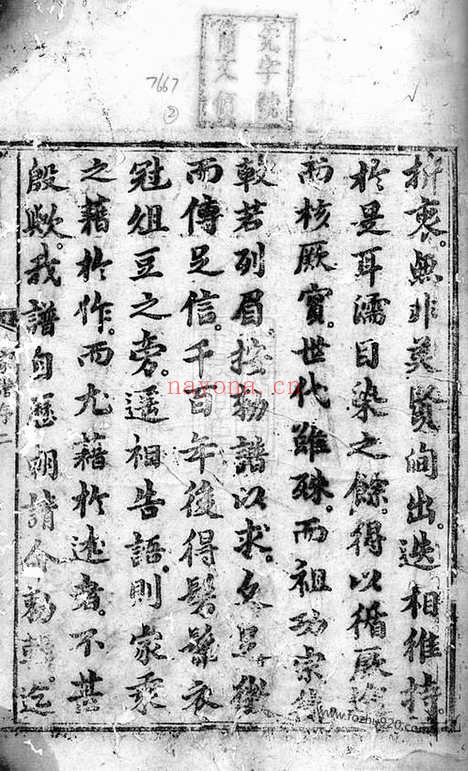 7667
②
折衷。無非英賢向出。迭相維持。
於是耳濡目染之餘。得以循厥
而核厥實。世代雖殊。而祖功宗
較若列眉。按切譜以求。文足徵
而傳足信。千百年後得髣髴衣
冠俎豆之旁。遥相告語。則家乘
之藉於作。而尤藉於述者。不甚
殷歟。我譜自歷朝請令勅輯。迄
nayona.cn
www.fozhu920.com